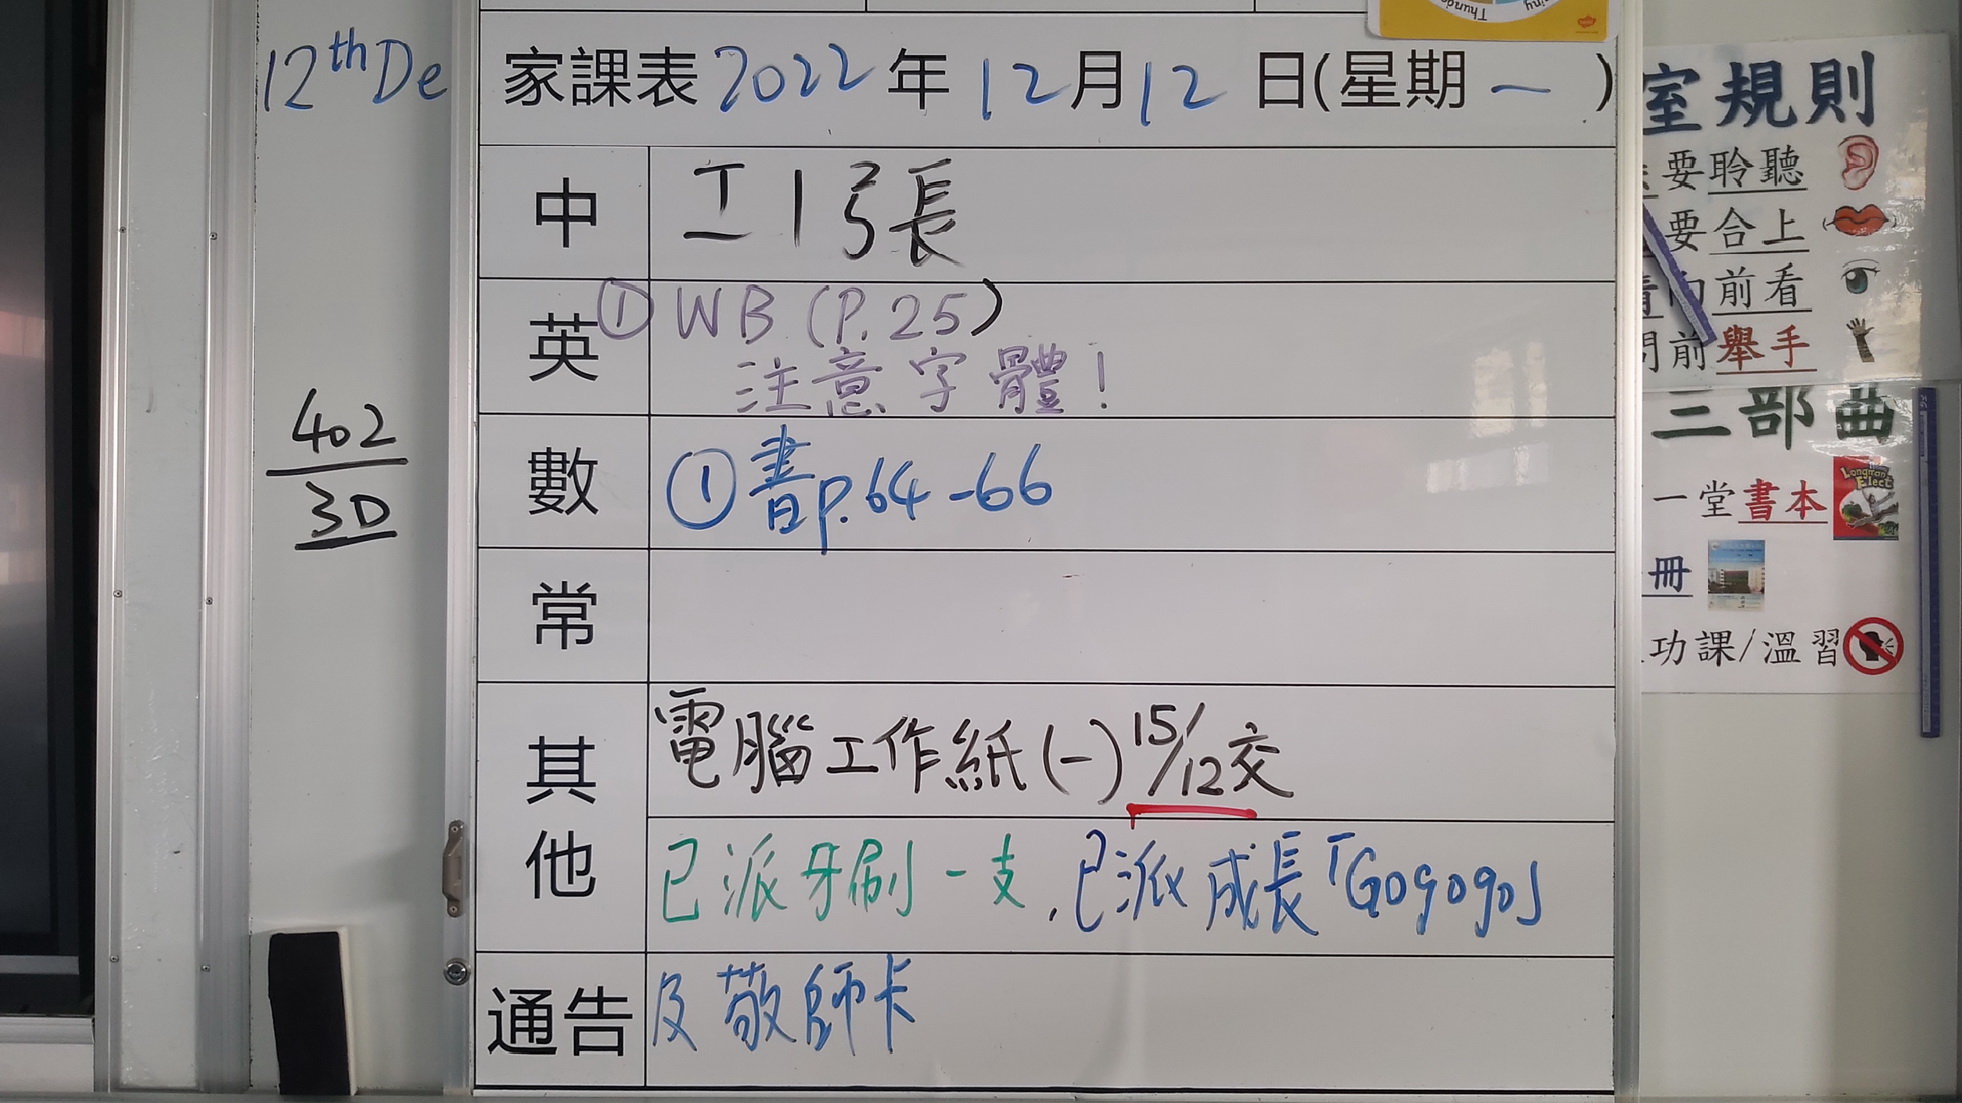 Thunde
iny
12th De
家課表 2022 年 12 月 12 日(星期 一 )
中
工 1 張
英
① WB (P.25)
注意字體!
數
① 書p.64-66
常
其他
電腦工作紙(一) 15/12交
已派牙刷一支,已派成長「Gogogo」
通告
及敬師卡
402
3D
室規則
要聆聽
要合上
向前看
問前舉手
三部曲
一堂書本
Longman Elect
冊
功課/溫習